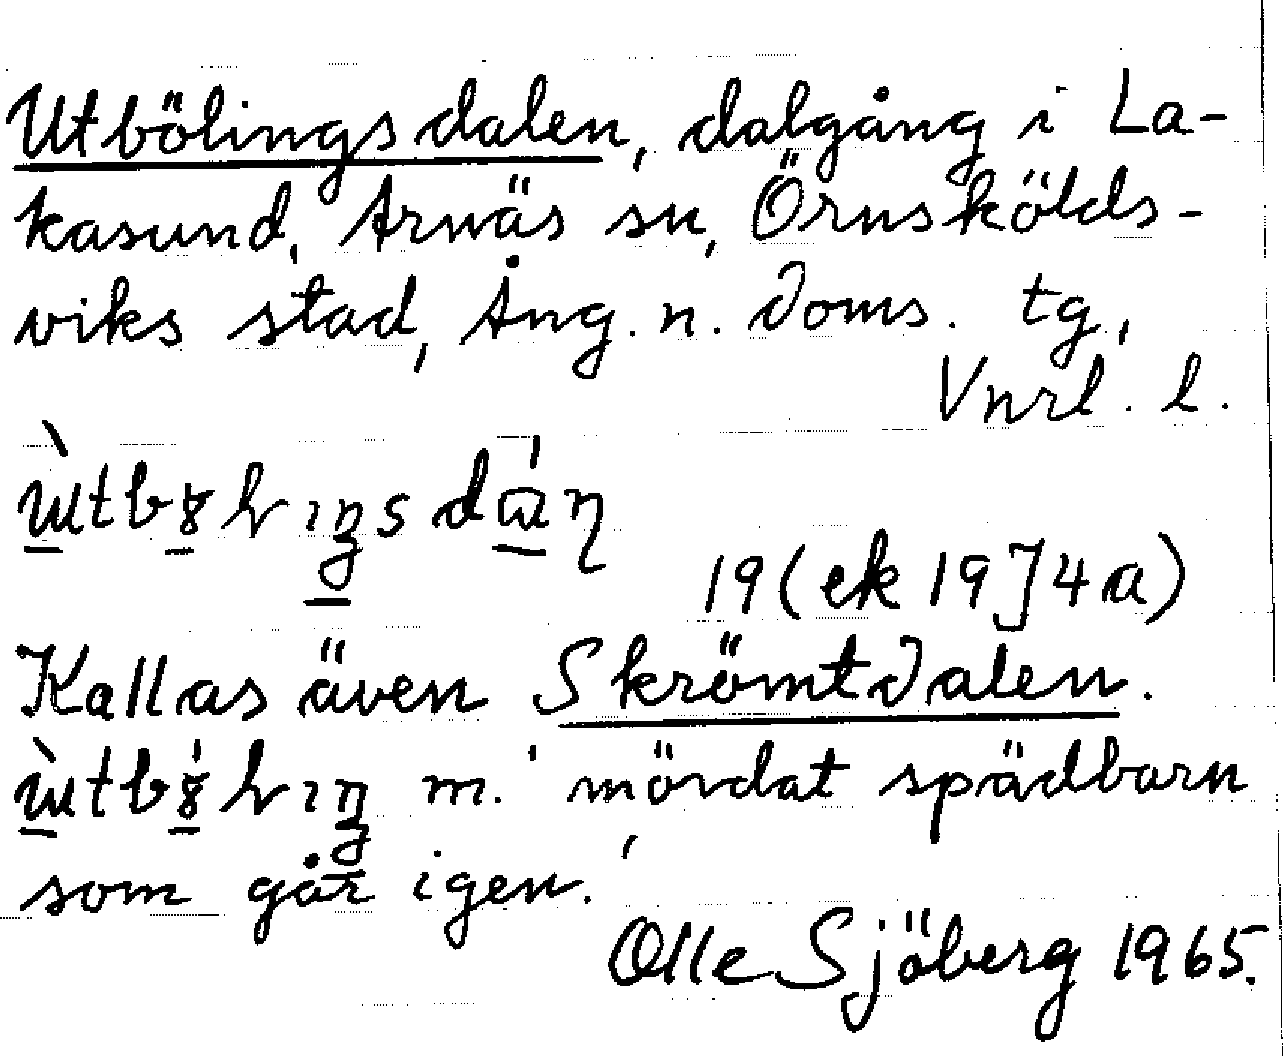 Utbölingsdalen, dalgång i La-
kasund, Arnäs sn, Örnskölds-
viks stad, Ång. n. doms. tg,
Vnrl. l.
19 (ek 19J4a)
Kallas även Skrömtdalen.
m. 'mördat spädbarn
som går igen.'
Olle Sjöberg 1965.